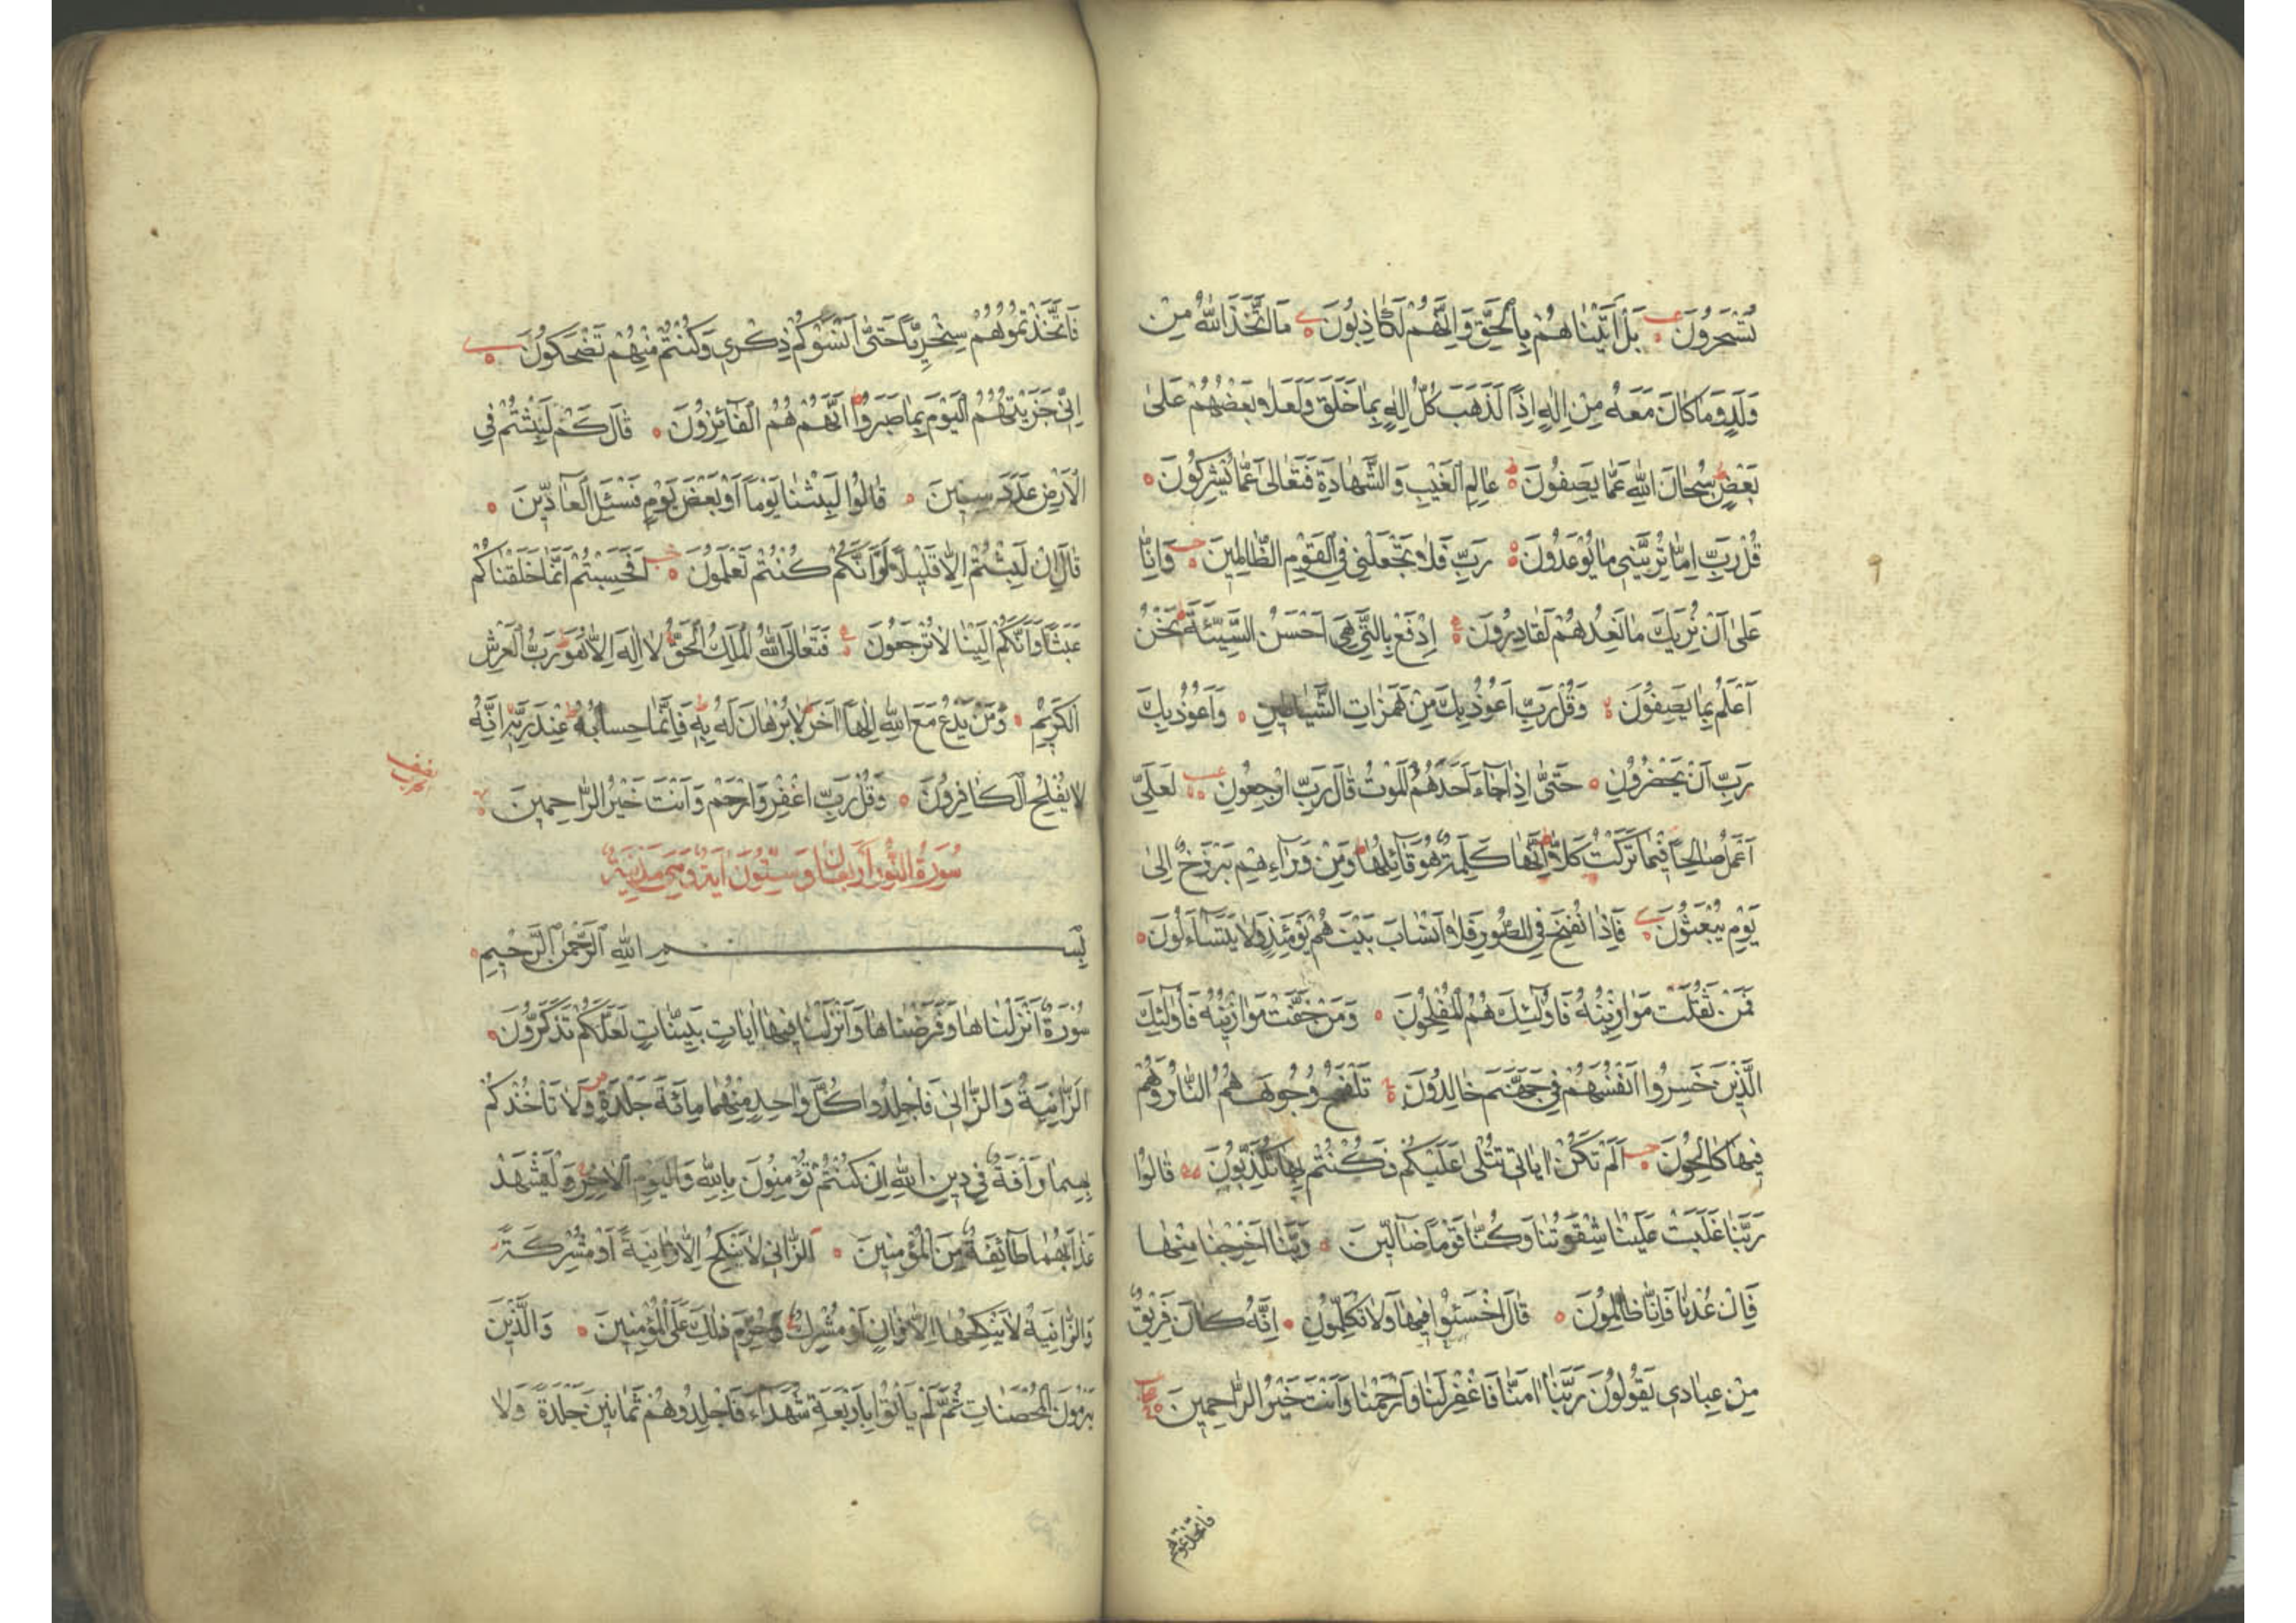 تُسْحَرُونَ بَلْ اَتَيْنَاهُمْ بِالْحَقِّ وَاِنَّهُمْ لَكَاذِبُونَ مَا اتَّخَذَ اللّٰهُ مِنْ
وَلَدٍ وَمَا كَانَ مَعَهُ مِنْ اِلٰهٍ اِذًا لَذَهَبَ كُلُّ اِلٰهٍ بِمَا خَلَقَ وَلَعَلَا بَعْضُهُمْ عَلٰى
بَعْضٍ سُبْحَانَ اللّٰهِ عَمَّا يَصِفُونَ عَالِمِ الْغَيْبِ وَالشَّهَادَةِ فَتَعَالٰى عَمَّا يُشْرِكُونَ
قُلْ رَبِّ اِمَّا تُرِيَنِّي مَا يُوعَدُونَ رَبِّ فَلَا تَجْعَلْنِي فِي الْقَوْمِ الظَّالِمِينَ وَاِنَّا
عَلٰى اَنْ نُرِيَكَ مَا نَعِدُهُمْ لَقَادِرُونَ اِدْفَعْ بِالَّتِي هِيَ اَحْسَنُ السَّيِّئَةَ نَحْنُ
اَعْلَمُ بِمَا يَصِفُونَ وَقُلْ رَبِّ اَعُوذُ بِكَ مِنْ هَمَزَاتِ الشَّيَاطِينِ وَاَعُوذُ بِكَ
رَبِّ اَنْ يَحْضُرُونِ حَتّٰى اِذَا جَاءَ اَحَدَهُمُ الْمَوْتُ قَالَ رَبِّ ارْجِعُونِ لَعَلِّي
اَعْمَلُ صَالِحًا فِيمَا تَرَكْتُ كَلَّا اِنَّهَا كَلِمَةٌ هُوَ قَائِلُهَا وَمِنْ وَرَاءِهِمْ بَرْزَخٌ اِلٰى
يَوْمِ يُبْعَثُونَ فَاِذَا نُفِخَ فِي الصُّورِ فَلَا اَنْسَابَ بَيْنَهُمْ يَوْمَئِذٍ وَلَا يَتَسَاءَلُونَ
فَمَنْ ثَقُلَتْ مَوَازِينُهُ فَاُولٰئِكَ هُمُ الْمُفْلِحُونَ وَمَنْ خَفَّتْ مَوَازِينُهُ فَاُولٰئِكَ
الَّذِينَ خَسِرُوا اَنْفُسَهُمْ فِي جَهَنَّمَ خَالِدُونَ تَلْفَحُ وُجُوهَهُمُ النَّارُ وَهُمْ
فِيهَا كَالِحُونَ اَلَمْ تَكُنْ اٰيَاتِي تُتْلٰى عَلَيْكُمْ فَكُنْتُمْ بِهَا تُكَذِّبُونَ قَالُوا
رَبَّنَا غَلَبَتْ عَلَيْنَا شِقْوَتُنَا وَكُنَّا قَوْمًا ضَالِّينَ رَبَّنَا اَخْرِجْنَا مِنْهَا
فَاِنْ عُدْنَا فَاِنَّا ظَالِمُونَ قَالَ اخْسَئُوا فِيهَا وَلَا تُكَلِّمُونِ اِنَّهُ كَانَ فَرِيقٌ
مِنْ عِبَادِي يَقُولُونَ رَبَّنَا اٰمَنَّا فَاغْفِرْ لَنَا وَارْحَمْنَا وَاَنْتَ خَيْرُ الرَّاحِمِينَ
فاتخذتموهم
فَاتَّخَذْتُمُوهُمْ سِخْرِيًّا حَتّٰى اَنْسَوْكُمْ ذِكْرِي وَكُنْتُمْ مِنْهُمْ تَضْحَكُونَ
اِنِّي جَزَيْتُهُمُ الْيَوْمَ بِمَا صَبَرُوا اَنَّهُمْ هُمُ الْفَائِزُونَ قَالَ كَمْ لَبِثْتُمْ فِي
الْاَرْضِ عَدَدَ سِنِينَ قَالُوا لَبِثْنَا يَوْمًا اَوْ بَعْضَ يَوْمٍ فَسْئَلِ الْعَادِّينَ
قَالَ اِنْ لَبِثْتُمْ اِلَّا قَلِيلًا لَوْ اَنَّكُمْ كُنْتُمْ تَعْلَمُونَ اَفَحَسِبْتُمْ اَنَّمَا خَلَقْنَاكُمْ
عَبَثًا وَاَنَّكُمْ اِلَيْنَا لَا تُرْجَعُونَ فَتَعَالَى اللّٰهُ الْمَلِكُ الْحَقُّ لَا اِلٰهَ اِلَّا هُوَ رَبُّ الْعَرْشِ
الْكَرِيمِ وَمَنْ يَدْعُ مَعَ اللّٰهِ اِلٰهًا اٰخَرَ لَا بُرْهَانَ لَهُ بِهِ فَاِنَّمَا حِسَابُهُ عِنْدَ رَبِّهِ اِنَّهُ
لَا يُفْلِحُ الْكَافِرُونَ وَقُلْ رَبِّ اغْفِرْ وَارْحَمْ وَاَنْتَ خَيْرُ الرَّاحِمِينَ
سُورَةُ النُّورِ اَرْبَعٌ وَسِتُّونَ اٰيَةً وَهِيَ مَدَنِيَّةٌ
بِسْمِ اللّٰهِ الرَّحْمٰنِ الرَّحِيمِ
سُورَةٌ اَنْزَلْنَاهَا وَفَرَضْنَاهَا وَاَنْزَلْنَا فِيهَا اٰيَاتٍ بَيِّنَاتٍ لَعَلَّكُمْ تَذَكَّرُونَ
اَلزَّانِيَةُ وَالزَّانِي فَاجْلِدُوا كُلَّ وَاحِدٍ مِنْهُمَا مِائَةَ جَلْدَةٍ وَلَا تَأْخُذْكُمْ
بِهِمَا رَأْفَةٌ فِي دِينِ اللّٰهِ اِنْ كُنْتُمْ تُؤْمِنُونَ بِاللّٰهِ وَالْيَوْمِ الْاٰخِرِ وَلْيَشْهَدْ
عَذَابَهُمَا طَائِفَةٌ مِنَ الْمُؤْمِنِينَ اَلزَّانِي لَا يَنْكِحُ اِلَّا زَانِيَةً اَوْ مُشْرِكَةً
وَالزَّانِيَةُ لَا يَنْكِحُهَا اِلَّا زَانٍ اَوْ مُشْرِكٌ وَحُرِّمَ ذٰلِكَ عَلَى الْمُؤْمِنِينَ وَالَّذِينَ
يَرْمُونَ الْمُحْصَنَاتِ ثُمَّ لَمْ يَأْتُوا بِاَرْبَعَةِ شُهَدَاءَ فَاجْلِدُوهُمْ ثَمَانِينَ جَلْدَةً وَلَا